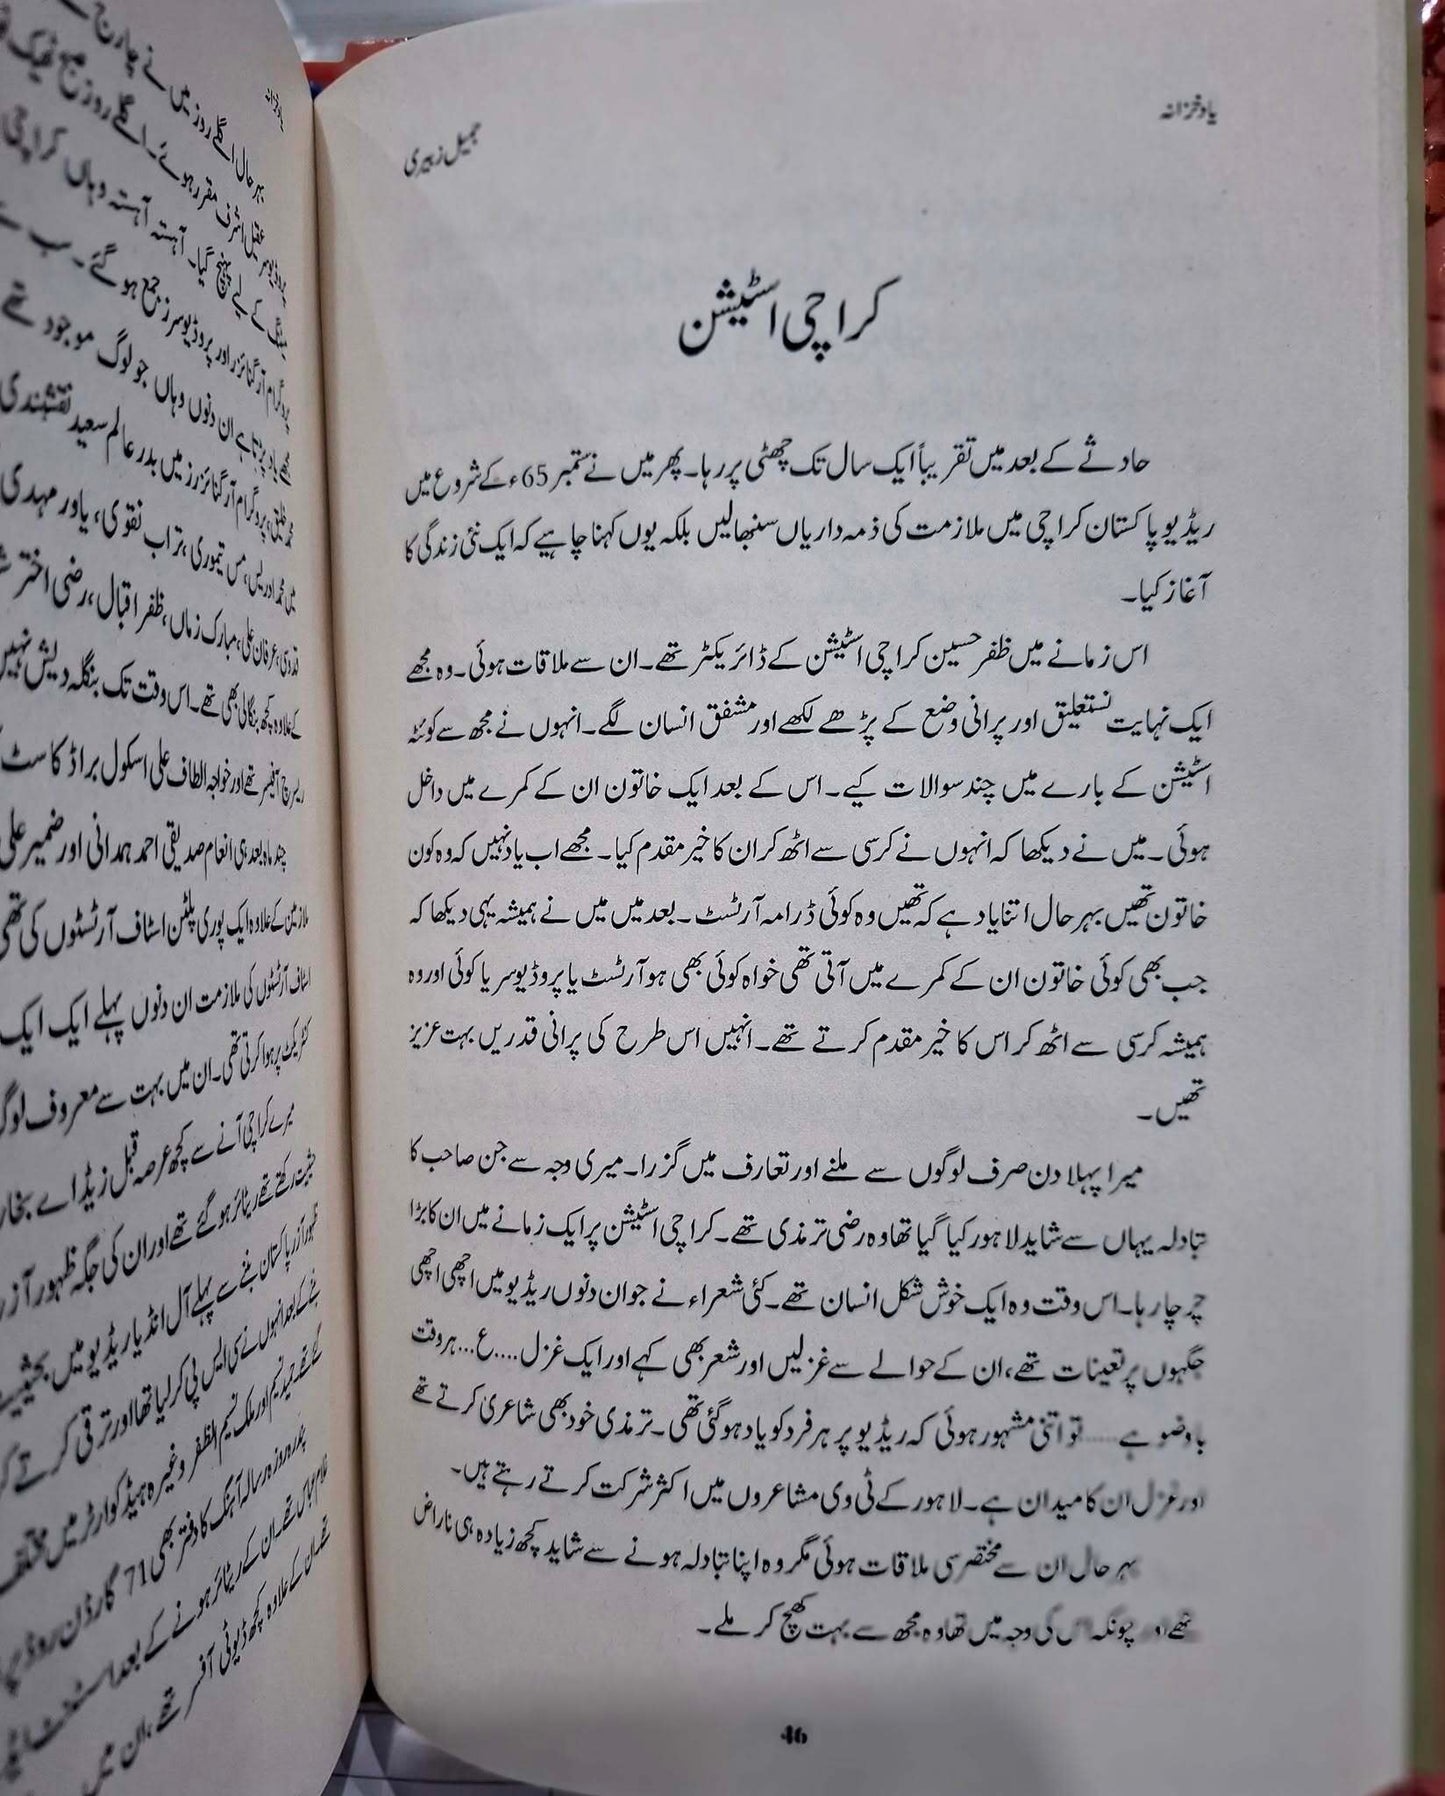 یاد خزانہ
جمیل زبیری
کراچی اسٹیشن
حادثے کے بعد میں تقریباً ایک سال تک چھٹی پر رہا۔ پھر میں نے ستمبر 65ء کے شروع میں
ریڈیو پاکستان کراچی میں ملازمت کی ذمہ داریاں سنبھالیں بلکہ یوں کہنا چاہیے کہ ایک نئی زندگی کا
آغاز کیا۔
اس زمانے میں ظفر حسین کراچی اسٹیشن کے ڈائریکٹر تھے۔ ان سے ملاقات ہوئی۔ وہ مجھے
ایک نہایت نستعلیق اور پرانی وضع کے پڑھے لکھے اور مشفق انسان لگے۔ انہوں نے مجھ سے کوئٹہ
اسٹیشن کے بارے میں چند سوالات کیے۔ اس کے بعد ایک خاتون ان کے کمرے میں داخل
ہوئی۔ میں نے دیکھا کہ انہوں نے کرسی سے اٹھ کر ان کا خیر مقدم کیا۔ مجھے اب یاد نہیں کہ وہ کون
خاتون تھیں بہر حال اتنا یاد ہے کہ تھیں وہ کوئی ڈرامہ آرٹسٹ۔ بعد میں میں نے ہمیشہ یہی دیکھا کہ
جب بھی کوئی خاتون ان کے کمرے میں آتی تھی خواہ کوئی بھی ہو آرٹسٹ یا پروڈیوسر یا کوئی اور وہ
ہمیشہ کرسی سے اٹھ کر اس کا خیر مقدم کرتے تھے۔ انہیں اس طرح کی پرانی قدریں بہت عزیز
تھیں۔
میرا پہلا دن صرف لوگوں سے ملنے اور تعارف میں گزرا۔ میری وجہ سے جن صاحب کا
تبادلہ یہاں سے شاید لاہور کیا گیا تھا وہ رضی ترمذی تھے۔ کراچی اسٹیشن پر ایک زمانے میں ان کا بڑا
چرچا رہا۔ اس وقت وہ ایک خوش شکل انسان تھے۔ کئی شعراء نے جو ان دنوں ریڈیو میں اچھی اچھی
جگہوں پر تعینات تھے، ان کے حوالے سے غزلیں اور شعر بھی کہے اور ایک غزل ....ع... ہر وقت
با وضو ہے ..... تو اتنی مشہور ہوئی کہ ریڈیو پر ہر فرد کو یاد ہو گئی تھی۔ ترمذی خود بھی شاعری کرتے تھے
اور غزل ان کا میدان ہے۔ لاہور کے ٹی وی مشاعروں میں اکثر شرکت کرتے رہتے ہیں۔
بہر حال ان سے مختصر سی ملاقات ہوئی مگر وہ اپنا تبادلہ ہونے سے شاید کچھ زیادہ ہی ناراض
تھے اور چونکہ اس کی وجہ میں تھا وہ مجھ سے بہت کھچ کر ملے۔
46
بہر حال اگلے روز میں نے چارج
عقیل اشرف مقرر ہوئے۔ اگلے روز صبح ٹھیک
میٹنگ کے لیے پہنچ گیا۔ آہستہ آہستہ وہاں کراچی
پروگرام آرگنائزر اور پروڈیوسرز جمع ہو گئے۔ سب سے
مجھے یاد پڑتا ہے ان دنوں وہاں جو لوگ موجود تھے
پروگرام آرگنائزرز میں بدر عالم سعید نقشبندی
میں محمد ادریس، مس تیموری، تراب نقوی، یاور مہدی
قدوسی، عرفان علی، مبارک زماں، ظفر اقبال، رضی اختر
کے علاوہ کچھ بنگالی بھی تھے۔ اس وقت تک بنگلہ دیش نہیں
ریسرچ آفیسر تھے اور خواجہ الطاف علی اسکول براڈ کاسٹ
چند ماہ بعد ہی انعام صدیقی احمد ہمدانی اور ضمیر علی
ملازمین کے علاوہ ایک پوری پلٹن اسٹاف آرٹسٹوں کی تھی
اسٹاف آرٹسٹوں کی ملازمت ان دنوں پہلے ایک ایک
کنٹریکٹ پر ہوا کرتی تھی۔ ان میں بہت سے معروف لوگ
میرے کراچی آنے سے کچھ عرصہ قبل زیڈ اے بخاری
حیثیت رکھتے تھے ریٹائر ہو گئے تھے اور ان کی جگہ ظہور آزر
ظہور آزر پاکستان بننے سے پہلے آل انڈیا ریڈیو میں بحیثیت
بننے کے بعد انہوں نے سی ایس پی کر لیا تھا اور ترقی کرتے
حمید نسیم اور ملک نسیم الظفر وغیرہ ہیڈ کوارٹر میں مختلف
پندرہ روزہ رسالہ آہنگ کا دفتر بھی 71 گارڈن روڈ
غلام عباس تھے۔ ان کے ریٹائر ہونے کے بعد اسسٹنٹ
تھے۔ ان کے علاوہ کچھ ڈیوٹی آفسر تھے، ان میں